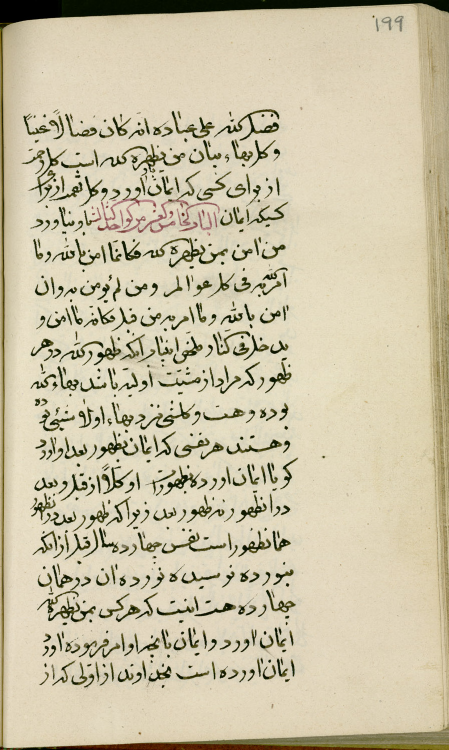 ۱۹۹
فضل الله علی عباده انه کان فضالا
و کل بهاء بیان من یظهره الله است کل رحمة
از برای کسی که ایمان اورد و کل نقمة از برای
کسیکه ایمان باو نیاورد الباب الخامس
من امن بمن یظهره الله فکانما امن بالله و ما
امر الله به فی کل عوالم و من لم یؤمن به و ان
امن بالله و ما امر به من قبل فکانه ما امن و
یدخل فی النار ملخص این باب انکه ظهور الله در هر
ظهور که مراد از مشیت اولیه باشد بهاء الله
بوده و هست و کلشیئ نزد بهاء او لا شیئ بوده
و هستند هر نفسی که ایمان بظهور بعد او اورد
کویا ایمان اورده بظهورات او کلا از قبل و بعد
در انظهور نه ظهور بعد زیرا که ظهور بعد در انظهور
همانظهور است نفس چهارده ساله قبل از انکه
بنوزده نرسیده نوزده ان در همان
چهارده هست اینست که هر کس بمن یظهره الله
ایمان اورد و ایمان بانچه او امر فرموده اورد
ایمان اورده است بخداوند از اولی که از